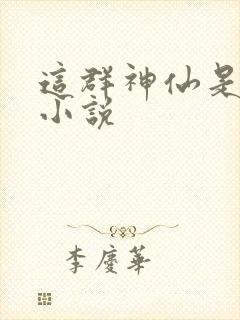 這群神仙是
小說
李慶華